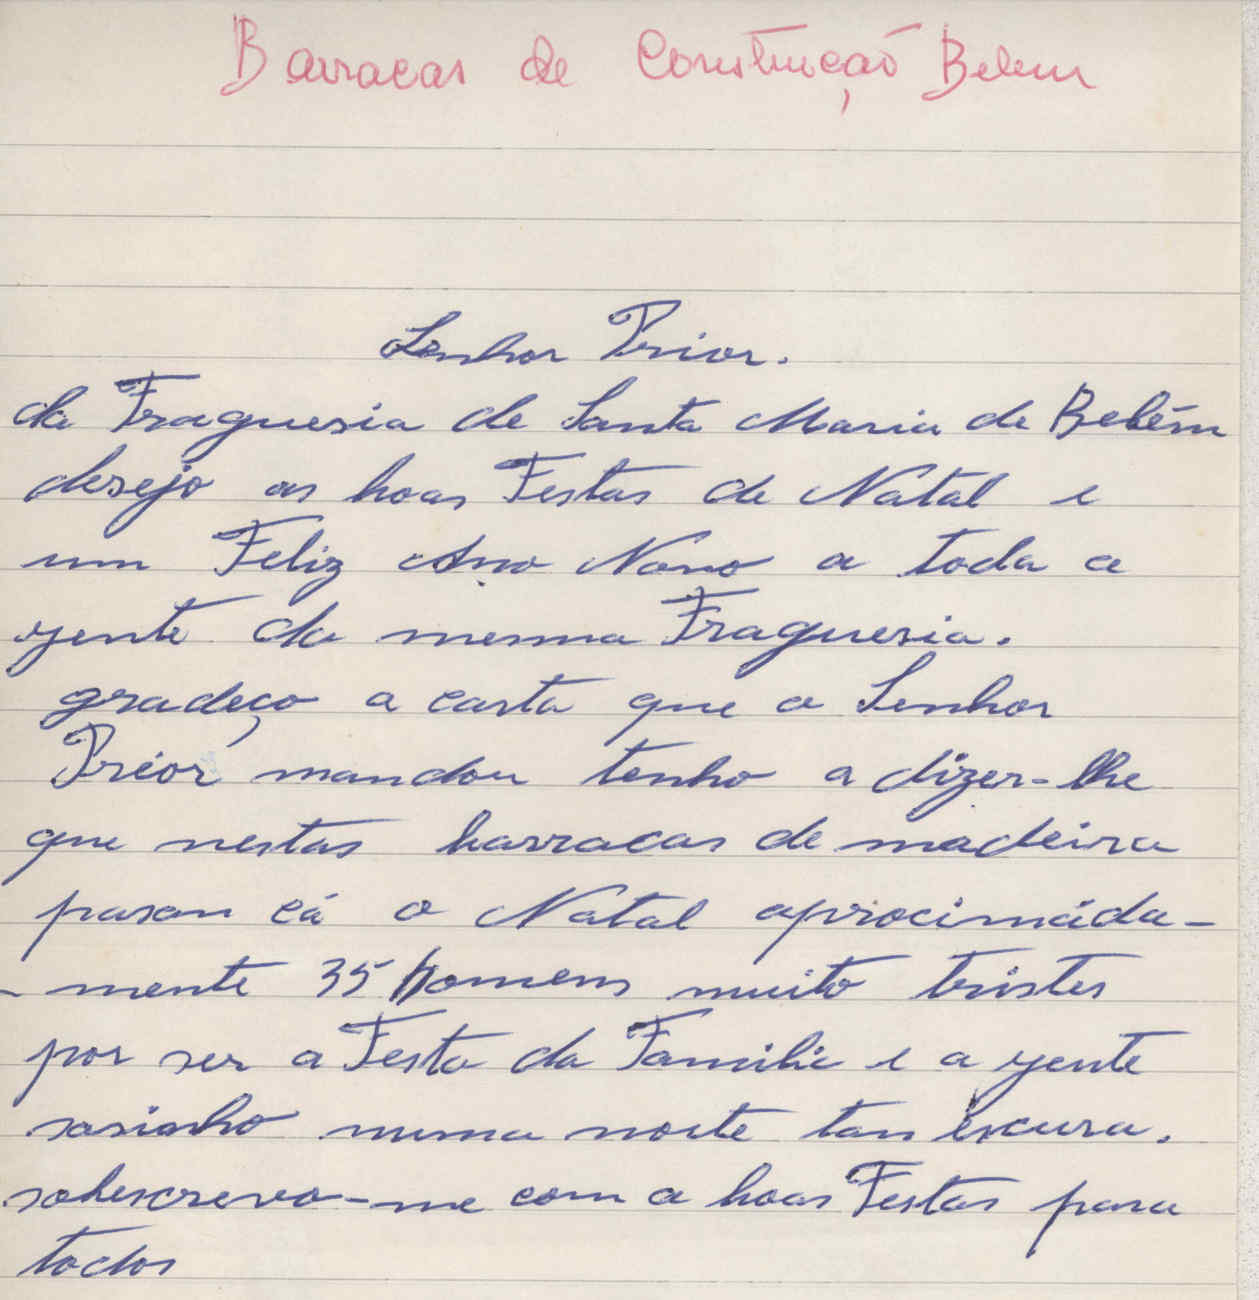 Barracas de Construção Belem
Senhor Prior.
da Fraguesia de Santa Maria de Belém
desejo as boas Festas de Natal e
um Feliz Ano Novo a toda a
gente da mesma Fraguesia.
gradeço a carta que o Senhor
Prior mandou tenho a dizer-lhe
que nestas barracas de madeira
pasan cá o Natal aprocimáda-
-mente 35 homens muito tristes
por ser a Festa da Familia e a gente
sosinho numa noite tan escura.
sobescrevo-me com a boas Festas para
todos